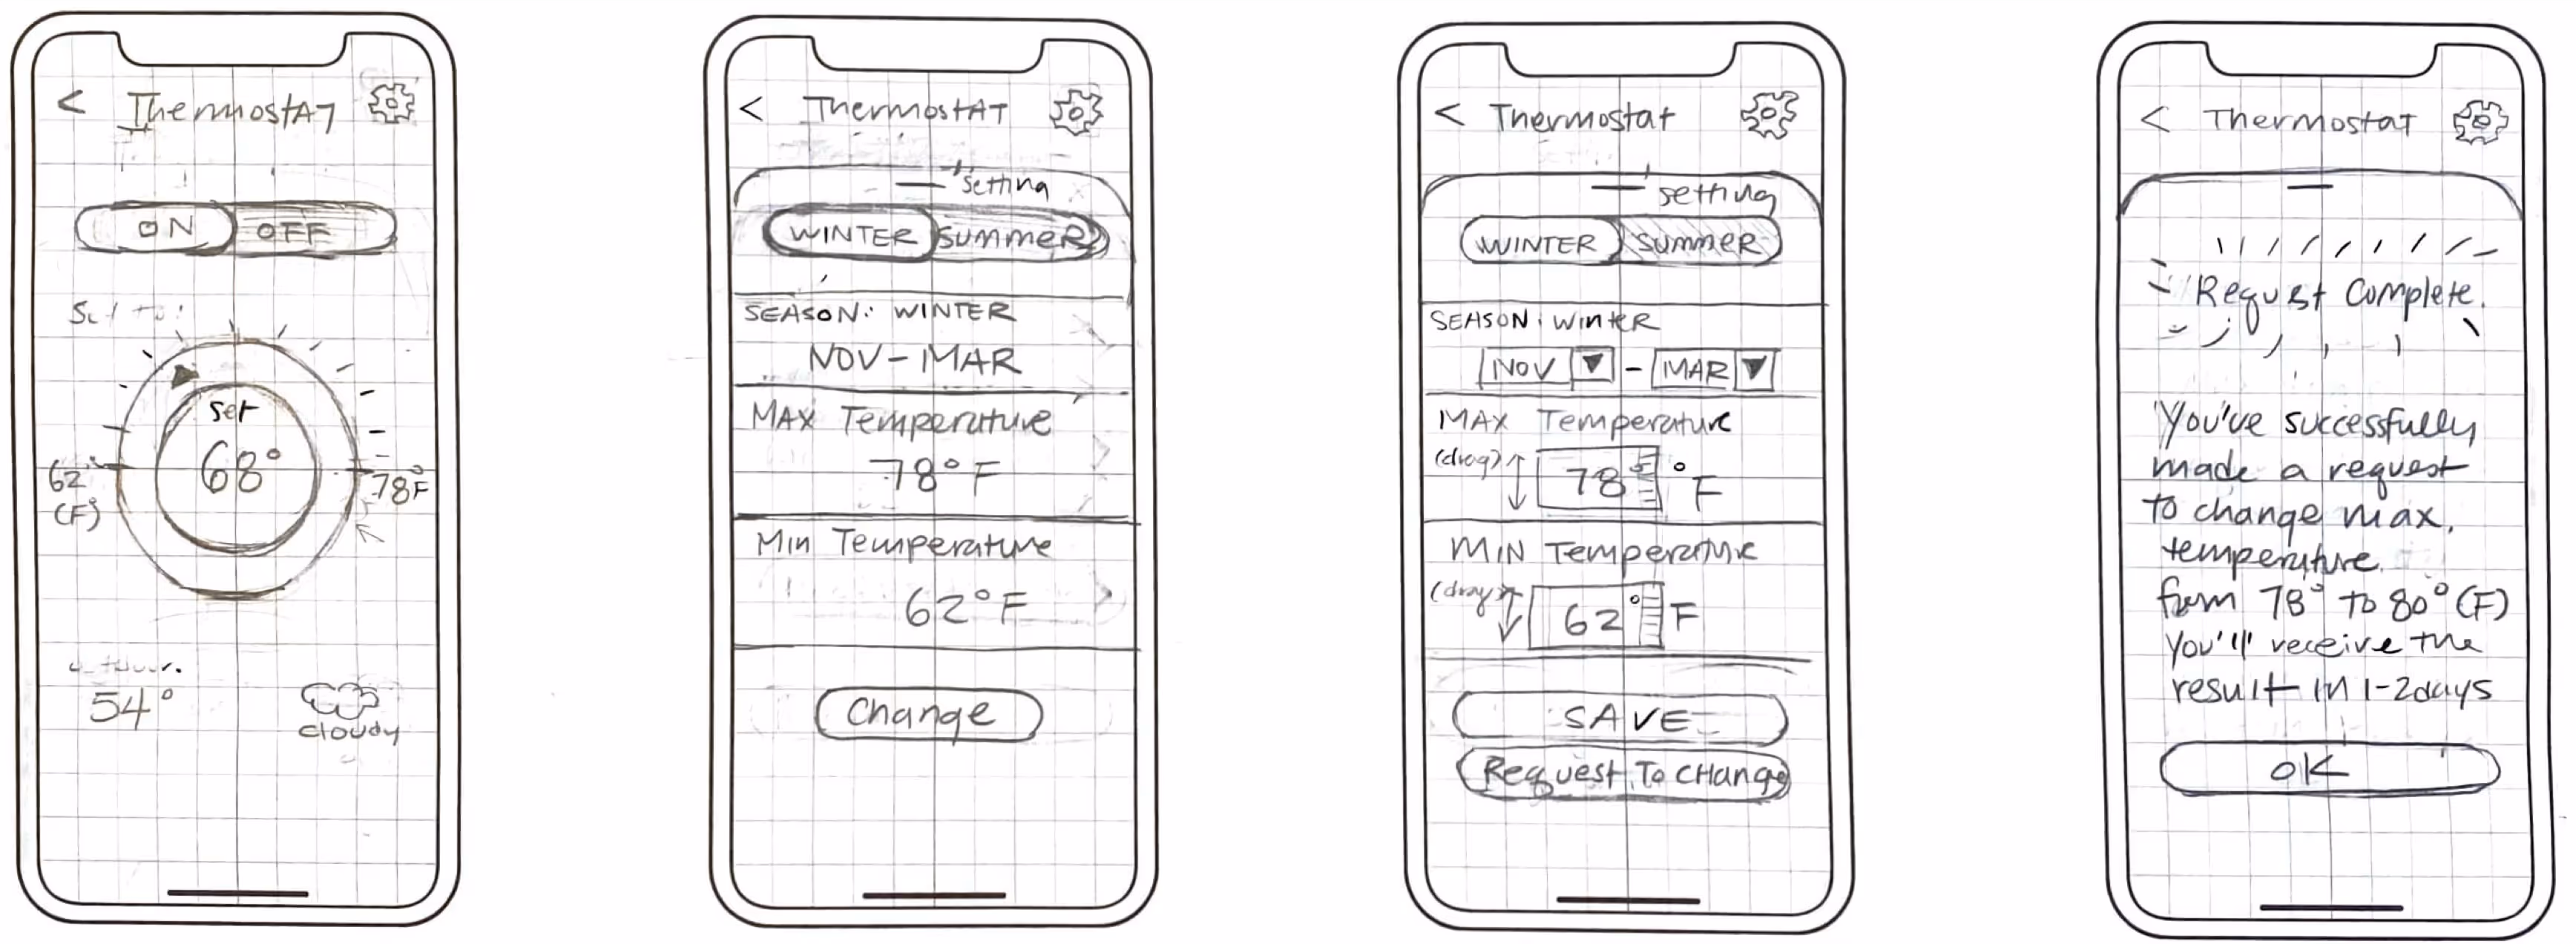 < ThermostAT
ON OFF
Set to:
set
68°
62°
(F)
78°F
54°
cloudy
< ThermostAT
setting
WINTER SUMMER
SEASON: WINTER
NOV - MAR
MAX Temperature
78° F
Min Temperature
62° F
Change
< Thermostat
setting
WINTER SUMMER
SEASON: Winter
NOV ▼ - MAR ▼
MAX Temperature
(drag) 78° °F
MIN Temperature
(drag) 62° F
SAVE
Request To CHange
< Thermostat
Request Complete.
You've successfully
made a request
to change max.
temperature
from 78° to 80° (F)
You'll receive the
result in 1-2days
OK